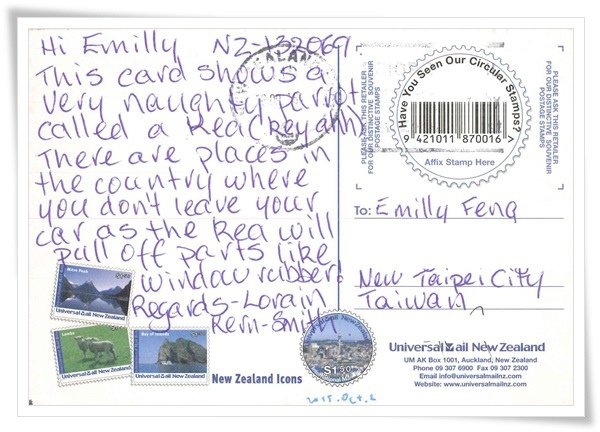 Hi Emilly NZ-132069.
This card shows a
very naughty parrot
called a Kea
There are places in
the country where
you don't leave your
car as the Kea will
pull off parts like
window rubber!
Regards - Lorain
Kern-Smith
Milne Peak
Universal Mail New Zealand
Lambs
Universal Mail New Zealand
Bay of Islands
Universal Mail New Zealand
New Zealand Icons
$1.90
2015.Oct.2
PLEASE ASK THIS RETAILER
FOR OUR DISTINCTIVE SOUVENIR
POSTAGE STAMPS
Have You Seen Our Circular Stamps?
9 421011 870016 >
Affix Stamp Here
PLEASE ASK THIS RETAILER
FOR OUR DISTINCTIVE SOUVENIR
POSTAGE STAMPS
To: Emilly Feng
New Taipei City
Taiwan
Universal Mail New Zealand
UM AK Box 1001, Auckland, New Zealand
Phone 09 307 6900 Fax 09 307 2300
Email info@universalmailnz.com
Website: www.universalmailnz.com